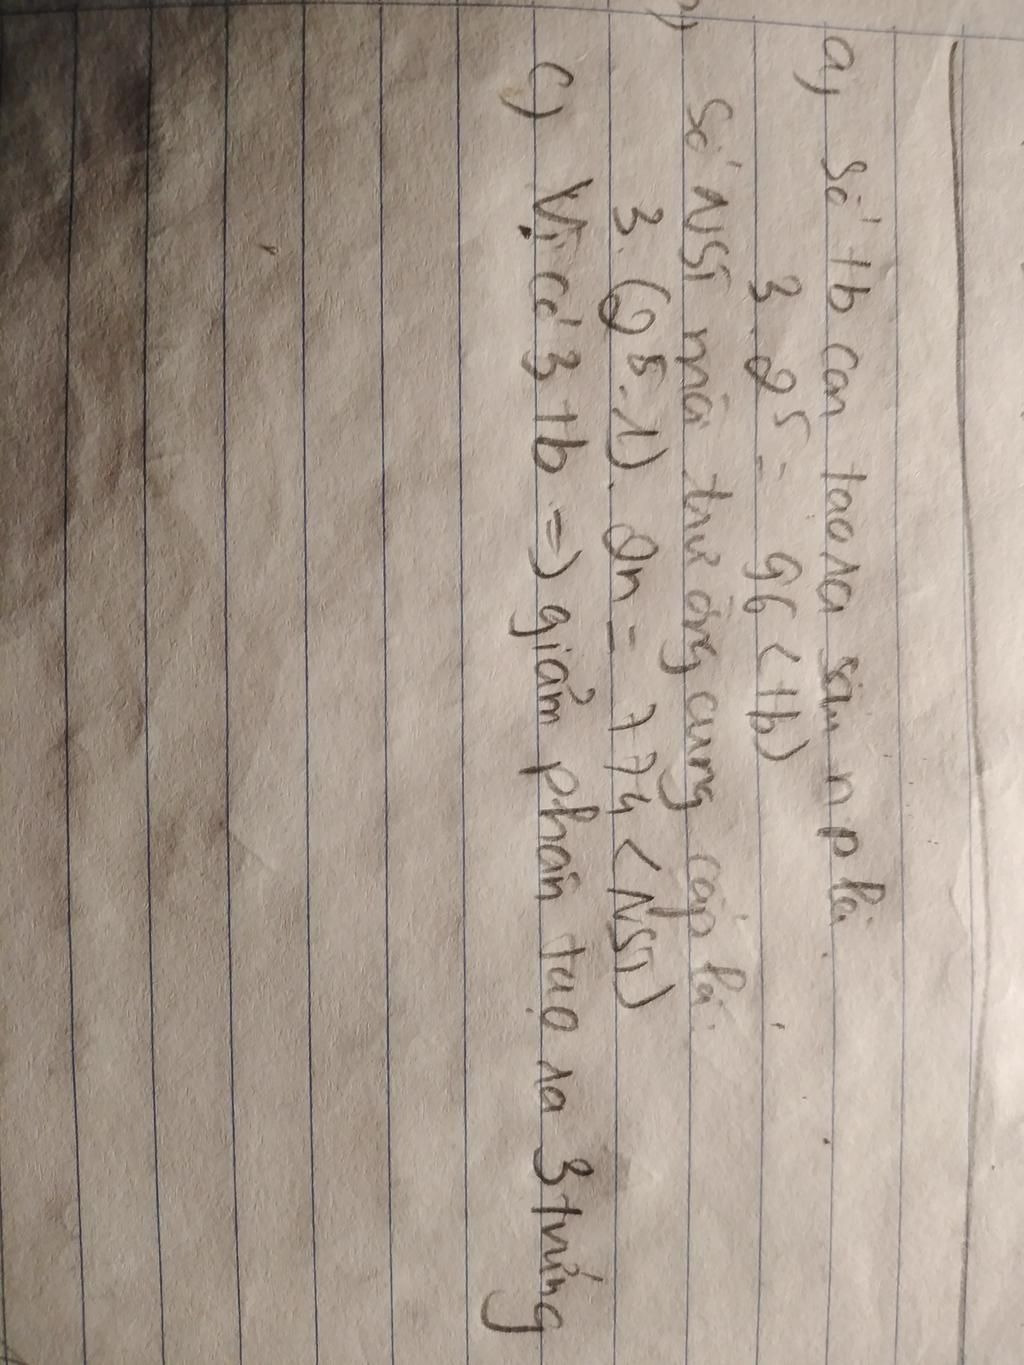 a, Số tb con tạo ra sau np là
3. 2⁵ = 96 (tb)
Số NST môi trường cung cấp là:
3. (2⁵-1). 2n = 774 (NST)
c) Vì có 3 tb => giảm phân tạo ra 3 trứng